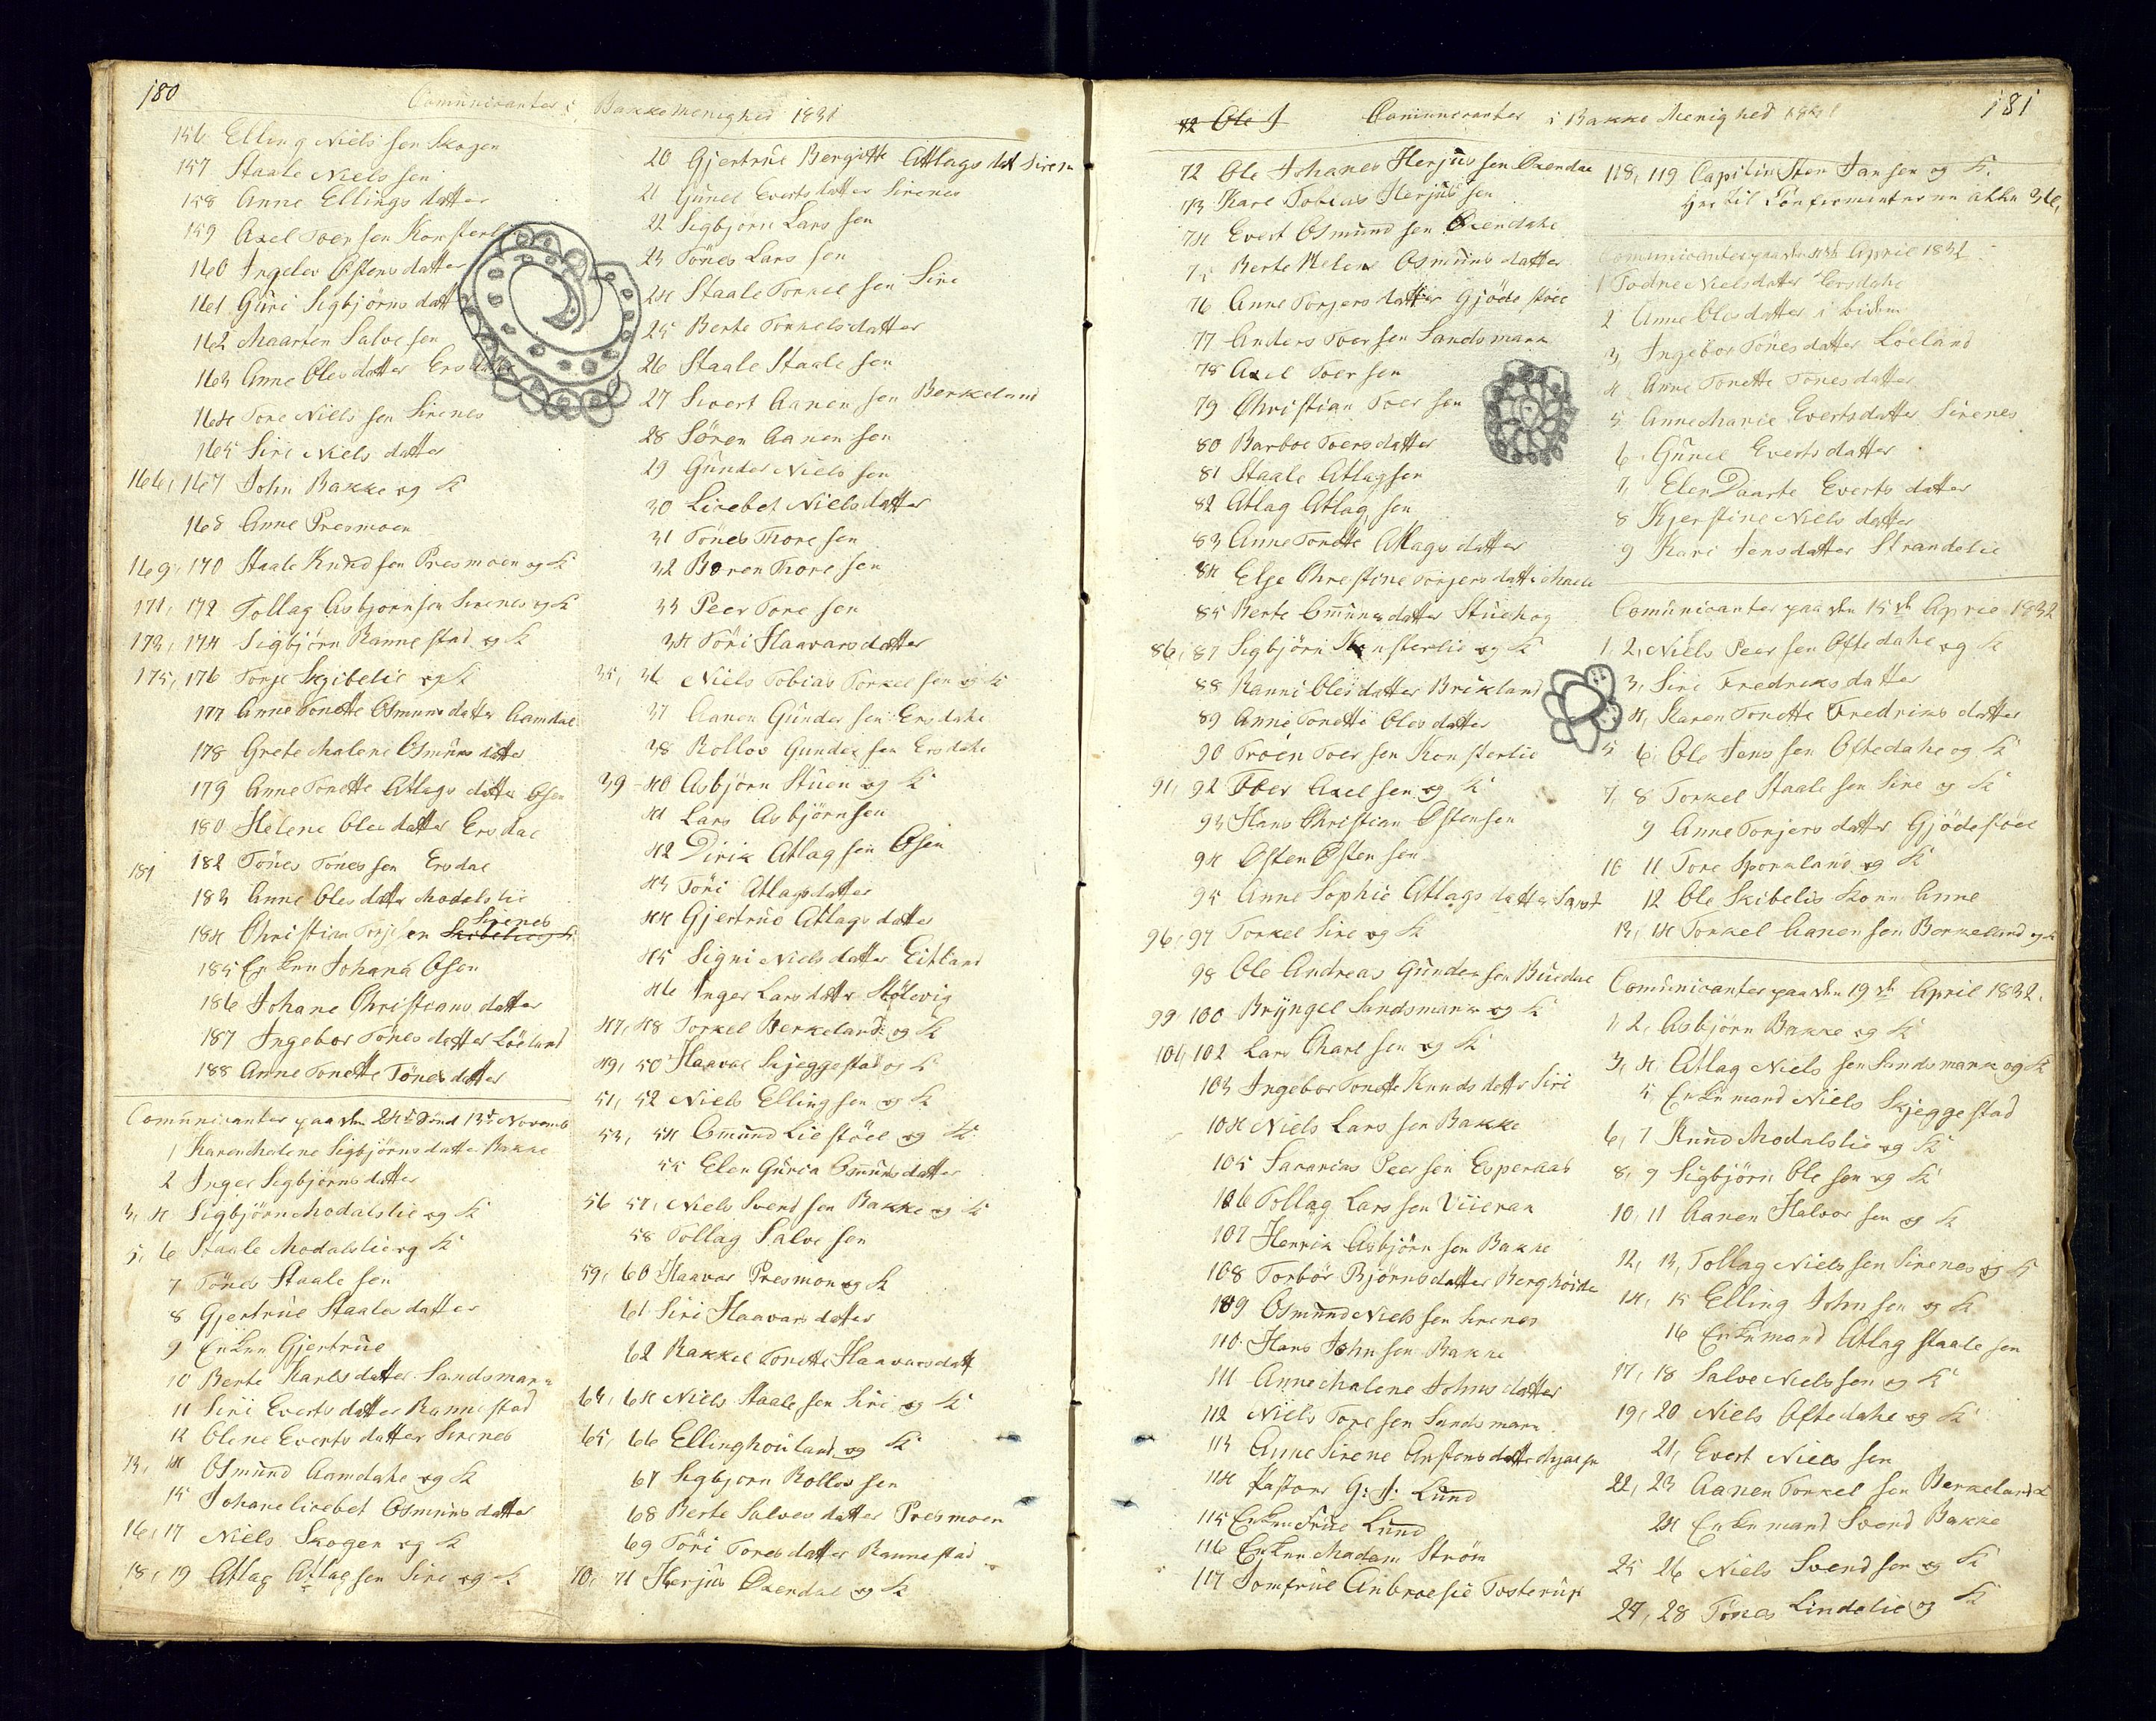 180
Comunicanter i Bakke Menighed 1831
156 Elling Nielssen Skogen
157 Staale Nielssen
158 Anne Ellingsdatter
159 Axel Toersen
160 Ingelev Østensdatter
161 Guri Sigbjörnsdatt
162 Maarten Salvesen
163 Anne Olesdatter
164 Tore Nielssen Sirenes
165 Siri Nielsdatter
166, 167 John Bakke og K
168 Anne Presmoen
169, 170 Staale Knudsen Presmoen og K
171, 172 Tollag Asbjornsen Sirenes og K
173, 174 Sigbjörn Rannestad og K
175, 176 Torje Skjibelie og K
177 Anne Tonette Osmunsdatter Aamdal
178 Grete Malene Osmunsdatter
179 Anne Tonette Atlagsdatter Osen
180 Helene Olesdatter Ersdal
181 182 Tönes Tönessen Ersdal
183 Anne Olesdatter Modalslie
184 Christian Torjesen Sirenes
185 Enken Johana Osen
186 Johane Christiansdatter
187 Ingebor Tönesdatter Löeland
188 Anne Tonette Tönesdatter
Comunicanter paa den 24de Sönd 13de Novemb
1 Karen Malene Sigbjörnsdatter Bakke
2 Inger Sigbjörnsdatter
3, 4 Sigbjörn Modalslie og K
5, 6 Staale Modalslie og K
7 Tönes Staalesen
8 Gjertrue Staalesdatter
9 Enken Gjertrue
10 Berte Karlsdatter Sandsmark
11 Siri Evertsdatter Rannestad
12 Olene Evertsdatter Sirenes
13, 14 Osmund Aamdahe og K
15 Johane Lisebet Osmunsdatter
16, 17 Niels Skogen og K
18, 19 Atlag Atlagsen Sire og K
20 Gjertrue Bergitte Atlagsdat Siren
21 Guneel Evertsdatter Sirenes
22 Sigbjörn Larssen
23 Tönes Larssen
24 Staale Torkelsen Sire
25 Berte Torkelsdatter
26 Staale Staalesen
27 Sivert Aanensen Berkeland
28 Sören Aanensen
29 Gunder Nielssen
30 Lisebet Nielsdatter
31 Tönes Thoresen
32 Boren Thoresen
33 Peer Toresen
34 Töri Haavarsdatter
35, 36 Niels Tobias Torkelsen og K
37 Aanen Gundersen Ersdahe
38 Rollov Gundersen Ersdahe
39 40 Asbjörn Stuen og K
41 Lars Asbjörnsen
42 Dirik Atlagsen Osen
43 Töri Atlagsdatter
44 Gjertrue Atlagsdatter
45 Signi Nielsdatter Eitland
46 Inger Larsdatter Stölevig
47, 48 Torkel Berkeland og K
49, 50 Haavar Skjeggestad og K
51, 52 Niels Ellingsen og K
53, 54 Omund Liestöel og K
55 Elen Guria Omunsdatter
56 57, Niels Svendsen Bakke og K
58 Tollag Salvesen
59, 60 Haavar Presmon og K
61 Siri Haavarsdatter
62 Rakkel Tonette Haavarsdatt
63, 64 Niels Staalesen Siri og K
65, 66 Elling houland og K
67 Sigbjorn Rollovsen
68 Berte Salvesdatter Presmoen
69 Töri Toresdatter Rannestad
70, 71 Herjus Oxendal og K
72 Ole J
Comunicanter i Bakke Menighed 1831
181
72 Ole Johanes Herjussen Oxendae
73 Karl Tobias Herjussen
74 Evert Osmundsen Oxendahe
75 Berte Helene Osmunsdatter
76 Anne Torjersdatter Gjödestöel
77 Anders Toersen Sandsmark
78 Axel Toersen
79 Christian Toersen
80 Barboe Toersdatter
81 Staale Atlagsen
82 Atlag Atlagsen
83 Anne Tonette Atlagsdatter
84 Elje Christine Torjersdatter
85 Berte Omunsdatter Stuehog
86, 87 Sigbjörn Konsterlie og K
88 Ranni Olesdatter Brikland
89 Anne Tonette Olesdatter
90 Troen Toersen Konsterlie
91, 92 Toer Axelsen og K
93 Hans Christian Østensen
94 Østen Østensen
95 Anne Sophie Atlagsdatter
96, 97 Torkel Sire og K
98 Ole Andreas Gundersen Buedal
99, 100 Bryngel Sandsmark og K
101, 102 Lars Charlsen og K
103 Ingebor Tonette Knudsdatter Siri
104 Niels Larssen Bakke
105 Sararias Peersen Esperaas
106 Tollag Larssen
107 Henrik Asbjörnsen Bakke
108 Torbör Björnsdatter Berghöide
109 Osmund Nielssen Sirenes
110 Hans Johnsen Bakke
111 Anne Malene Johnsdatter
112 Niels Toresen Sandsmark
113 Anne Sirene
114 Pastore G: J: Lund
115 Enken Frue Lund
116 Enken Madam Ström
117 Jomfrue Tosterup
118, 119 Capitin Sten Jansen og K.
Comunicanter paa den April 1832
1 Todne Nielsdatter Ersdahe
2 Anne Olesdatter
3, Ingebor Tönesdatter Löeland
4 Anne Tonette Tönesdatter
5 Anne Marie Evertsdatter Sirenes
6 Guneel Evertsdatter
7, Elen Daarte Evertsdatter
8 Kjerstine Nielsdatter
9 Kari Jensdatter Strandelie
Comunicanter paa den 15de April 1832
1, 2, Niels Peersen Oftedahe og K
3, Siri Fredriksdatter
4, Karen Tonette Fredriksdatter
5 6, Ole Jenssen Oftedahe og K
7, 8 Torkel Staalesen Sire og K
9 Anne Torjersdatter Gjödestöel
10 11 Tore Sporkland og K
12 Ole Skibelis Kone Anne
13, 14 Torkel Aanensen Berkeland og K
Comunicanter paa den 19de April 1832.
1, 2, Asbjörn Bakke og K
3, 4, Atlag Nielssen Sandsmark og K
5 Enkemand Niels Skjeggestad
6, 7 Knud Modalslie og K
8, 9 Sigbjörn Olesen og K
10, 11 Aanen Halvorsen og K
12, 13, Tollag Nielssen Sirenes og K
14, 15 Elling Johnsen og K
16 Enkemand Atlag Staalesen
17, 18 Salve Nielssen og K
19, 20 Niels Oftedahe og K
21, Evert Nielssen
22, 23 Aanen Torkelsen Berkeland
24 Enkemand Svend Bakke
25 26 Niels Svendsen og K
27, 28 Tönes Lindelie og K